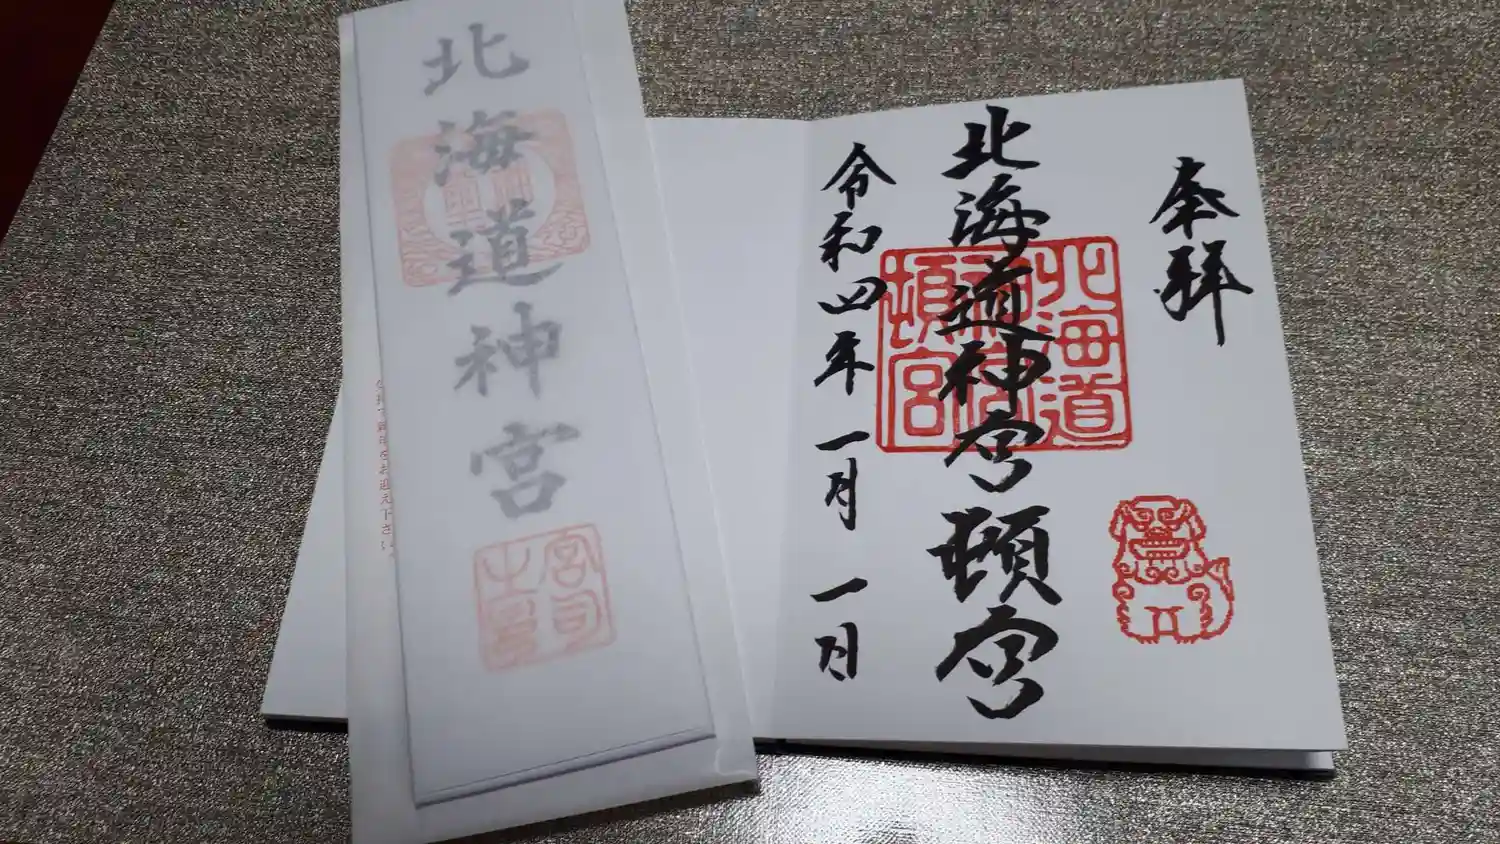 奉拝
北海道神宮頓宮
令和四年一月一日
北海道
頓宮
北海道神宮
宮司
之印